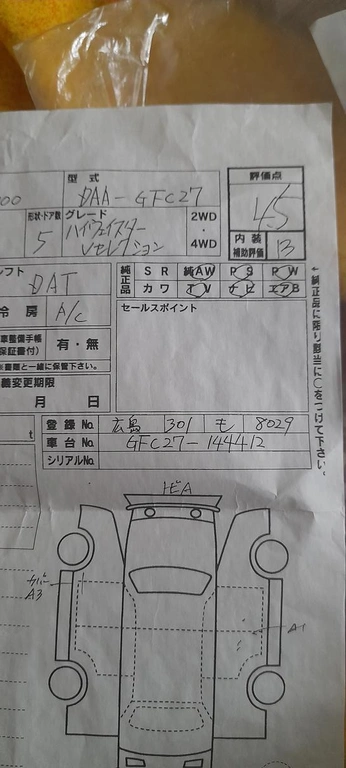 型式 評価点
00 DAA-GFC27 4.5
形状・ドア数 グレード 2WD
5 ハイウェイスター Vセレクション ・ 4WD
内装補助評価 B
シフト DAT
純正品 SR 純AW PS PW
カワ TV ナビ エアB
冷房 A/C
セールスポイント
車整備手帳 保証書付) 有・無
※書類と一緒に保管下さい。
義変更期限
月 日
←純正品に限り該当に○をつけて下さい。
登録No. 広島 301 も 8029
t 車台No. GFC27-144412
シリアルNo.
トビA
カバー A3
A1